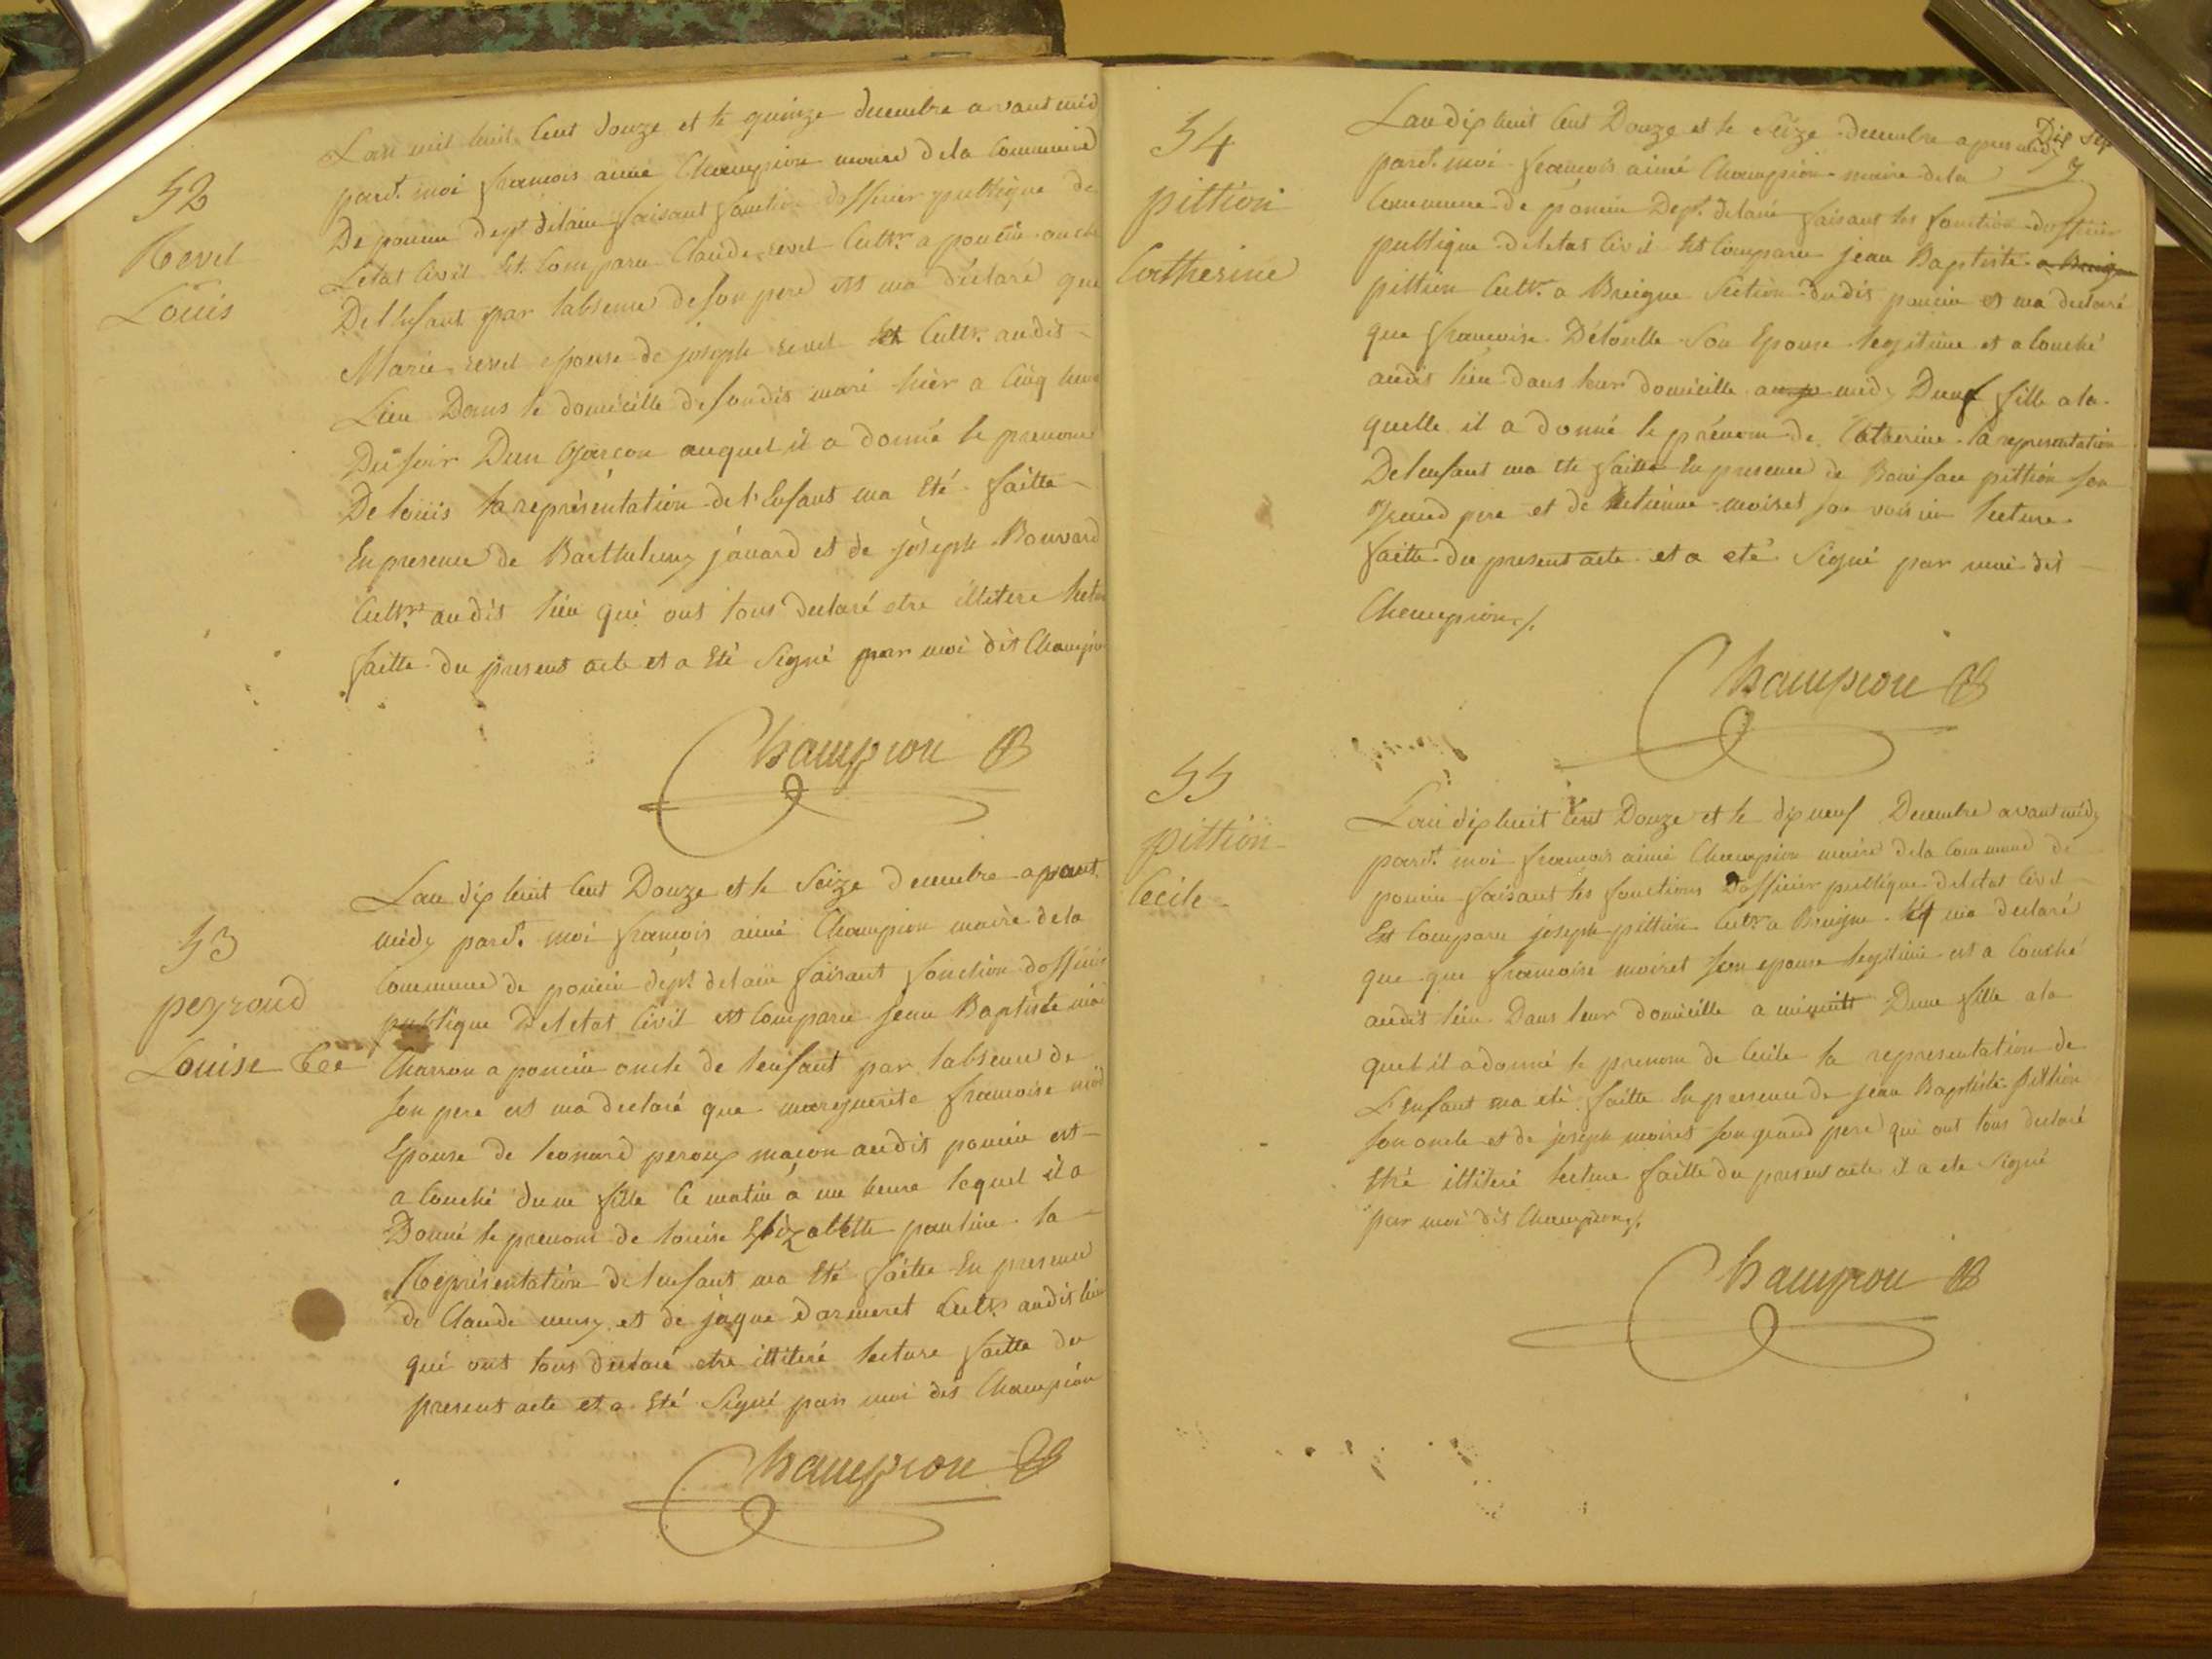 52
Revel
Louis
Lan mil huit Cent douze et le quinze decembre avant mid
pard.t moi francois aimé Champion maire dela Commune
De poncin dep.t delain faisant fonction dofficier publique de
Letat Civil Est Comparu Claude revel Cult.r a poncin oncle
Del Enfant par labsence de son pere et ma déclaré que
Marie revel Epouse de joseph revel Cult.r audit
Lieu Dans le domicille de sondit mari hier a Cinq heure
Du soir Dun Garcon auquel il a donné le prenom
De louis la représentation de l'Enfant ma Eté faitte
En presence de Barthelemy javard et de joseph Bouvard
Cult.rs audit lieu qui ont tous declaré etre illitere lectu
faitte du present acte et a Eté Signé par moi dit Champion
Champion
53
peyroud
Louise
Lan dix huit Cent Douze et le Seize decembre avant
midy pard.t moi francois aimé Champion maire dela
Commune de poncin dep.t delain faisant fonction doffici
publique Deletat Civil est Comparu Jean Baptiste
Charron a poncin oncle de lenfant par labsence de
son pere et ma declaré que marguerite francoise
Epouse de leonard peroux macon audit poncin est
a Couché dune fille Ce matin a une heure lequel il a
Donné le prenom de louise Elizabette pauline la
Représentation de lenfant ma Eté faitte En presence
de Claude et de jaque darmeret Cult.rs audit lieu
qui ont tous declaré etre illiteré lecture faitte du
present acte et a Eté Signé par moi dit Champion
Champion
Dix Sep
54
pittion
Catherine
Lan dix huit Cent Douze et le Seize decembre apres midy
pard.t moi francois aimé Champion maire dela
Commune de poncin Dep.t delain faisant les fonction dofficier
publique deletat Civil Est Comparu jean Baptiste
pittion Cult.r a Breigne Section dudit poncin et ma declaré
que francoise Son Epouse legitime et a Couché
audit lieu dans leur domicille midy Dune fille a la
quelle il a donné le prénom de Catherine la representation
Delenfant ma ete faitte En presence de Boniface pittion son
Grand pere et de etienne moiret son voisin lecture
faitte du present acte et a eté Signé par moi dit
Champion
Champion
55
pittion
Cécile
Lan dix huit Cent Douze et le dix neuf Decembre avant midy
pard.t moi francois aimé Champion maire dela Commune de
poncin faisant les fonctions Dofficier publique deletat Civil
Est Comparu joseph pittion Cult.r a Breigne et ma declaré
que que francoise moiret son epouse legitime est a Couché
audit lieu Dans leur domicille a minuitt Dune fille a la
quel il a donné le prenom de Cecile la representation de
L'enfant ma eté faitte En presence de jean Baptiste pittion
son oncle et de joseph moiret son grand pere qui ont tous declaré
Etré illiteré lecture faitte du present acte il a ete Signé
par moi dit Champion
Champion